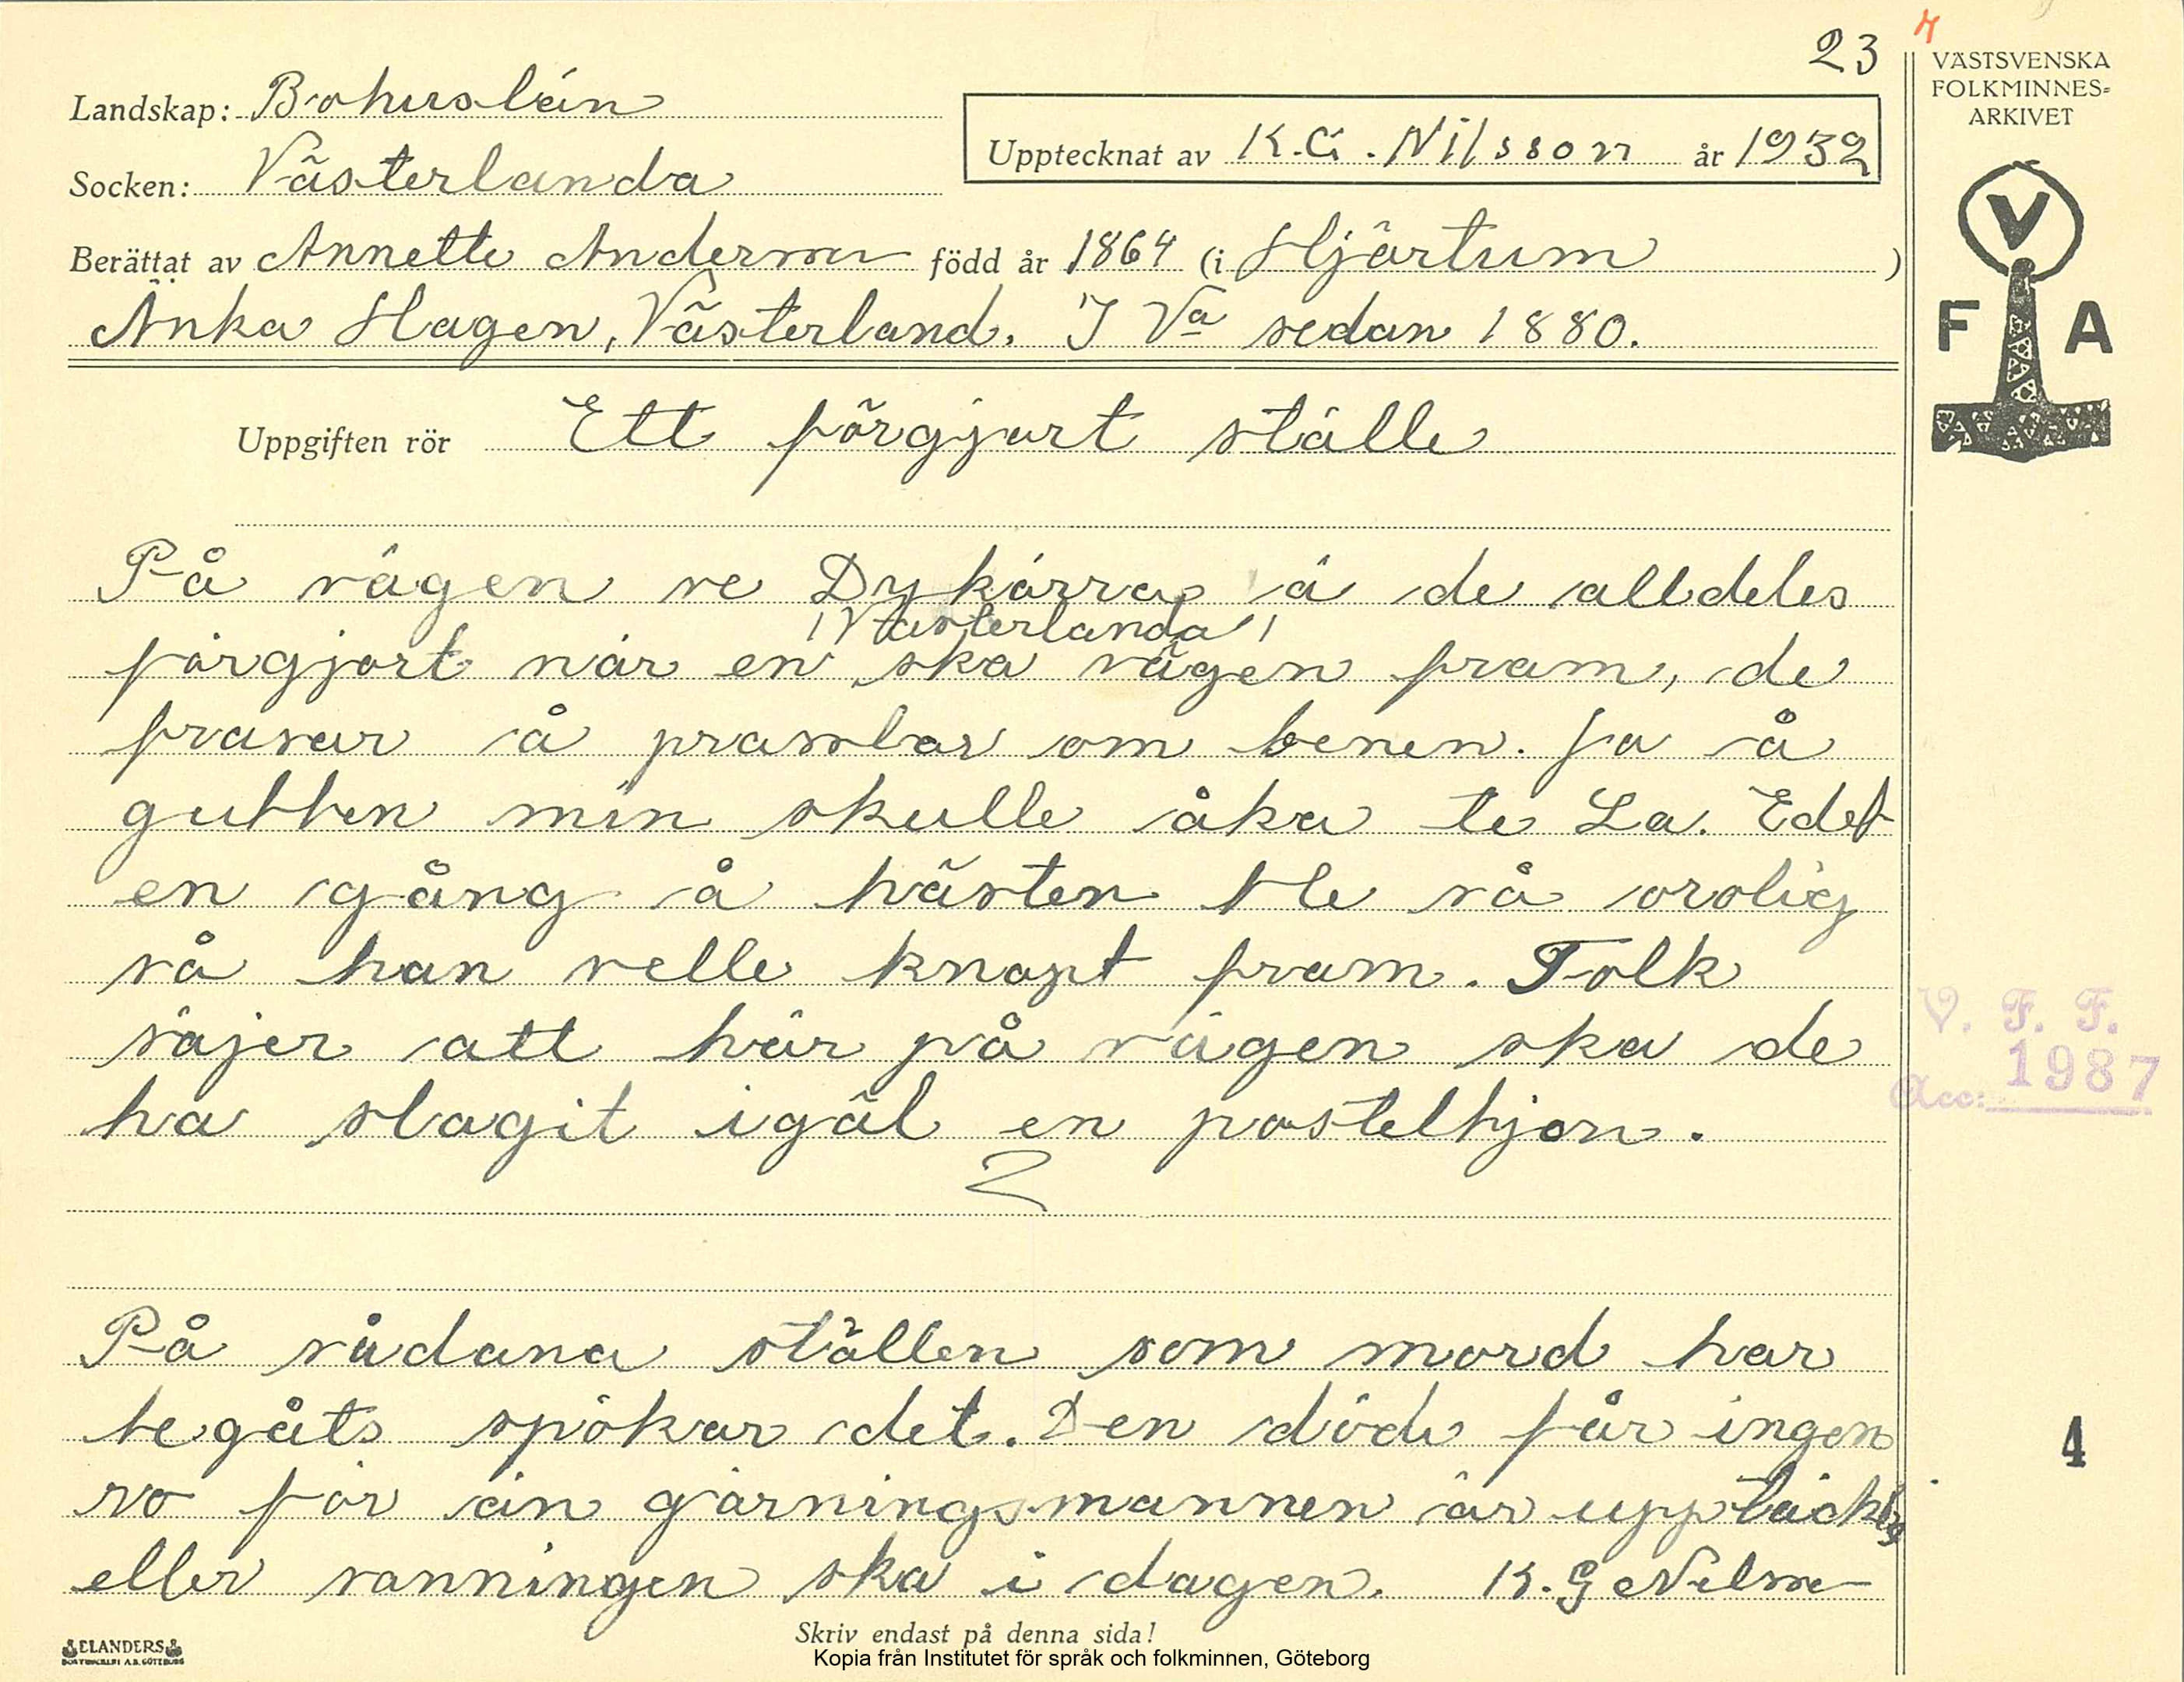 23
4
VÄSTSVENSKA
FOLKMINNES-
ARKIVET
Landskap: Bohuslän
Upptecknat av K.G. Nilsson år 1932
Socken: Västerlanda
Berättat av Annette Anderson född år 1864 (i Hjärtum )
Änka Hagen, Västerland. I Va sedan 1880.
V
F A
Uppgiften rör Ett förgjort ställe
På vägen ve Dykärra, ä de alldeles
(Västerlanda)
förgjort när en ska vägen fram, de
frasar å prasslar om benen. Ja å
gubben min skulle åka te La. Edet
en gång å hästen ble så orolig
så han velle knapt fram. Folk
säjer att här på vägen ska de
ha slagit igäl en postelhjon.
V. F. F.
Acc: 1987
På sådana ställen som mord har
begåts spökar det. Den döde får ingen
ro för än gärningsmannen är upptäckt,
eller sanningen ska i dagen. K. G Nilsson
4
Skriv endast på denna sida!
ELANDERS
BOKTRYCKERI A.B. GÖTEBORG
Kopia från Institutet för språk och folkminnen, Göteborg